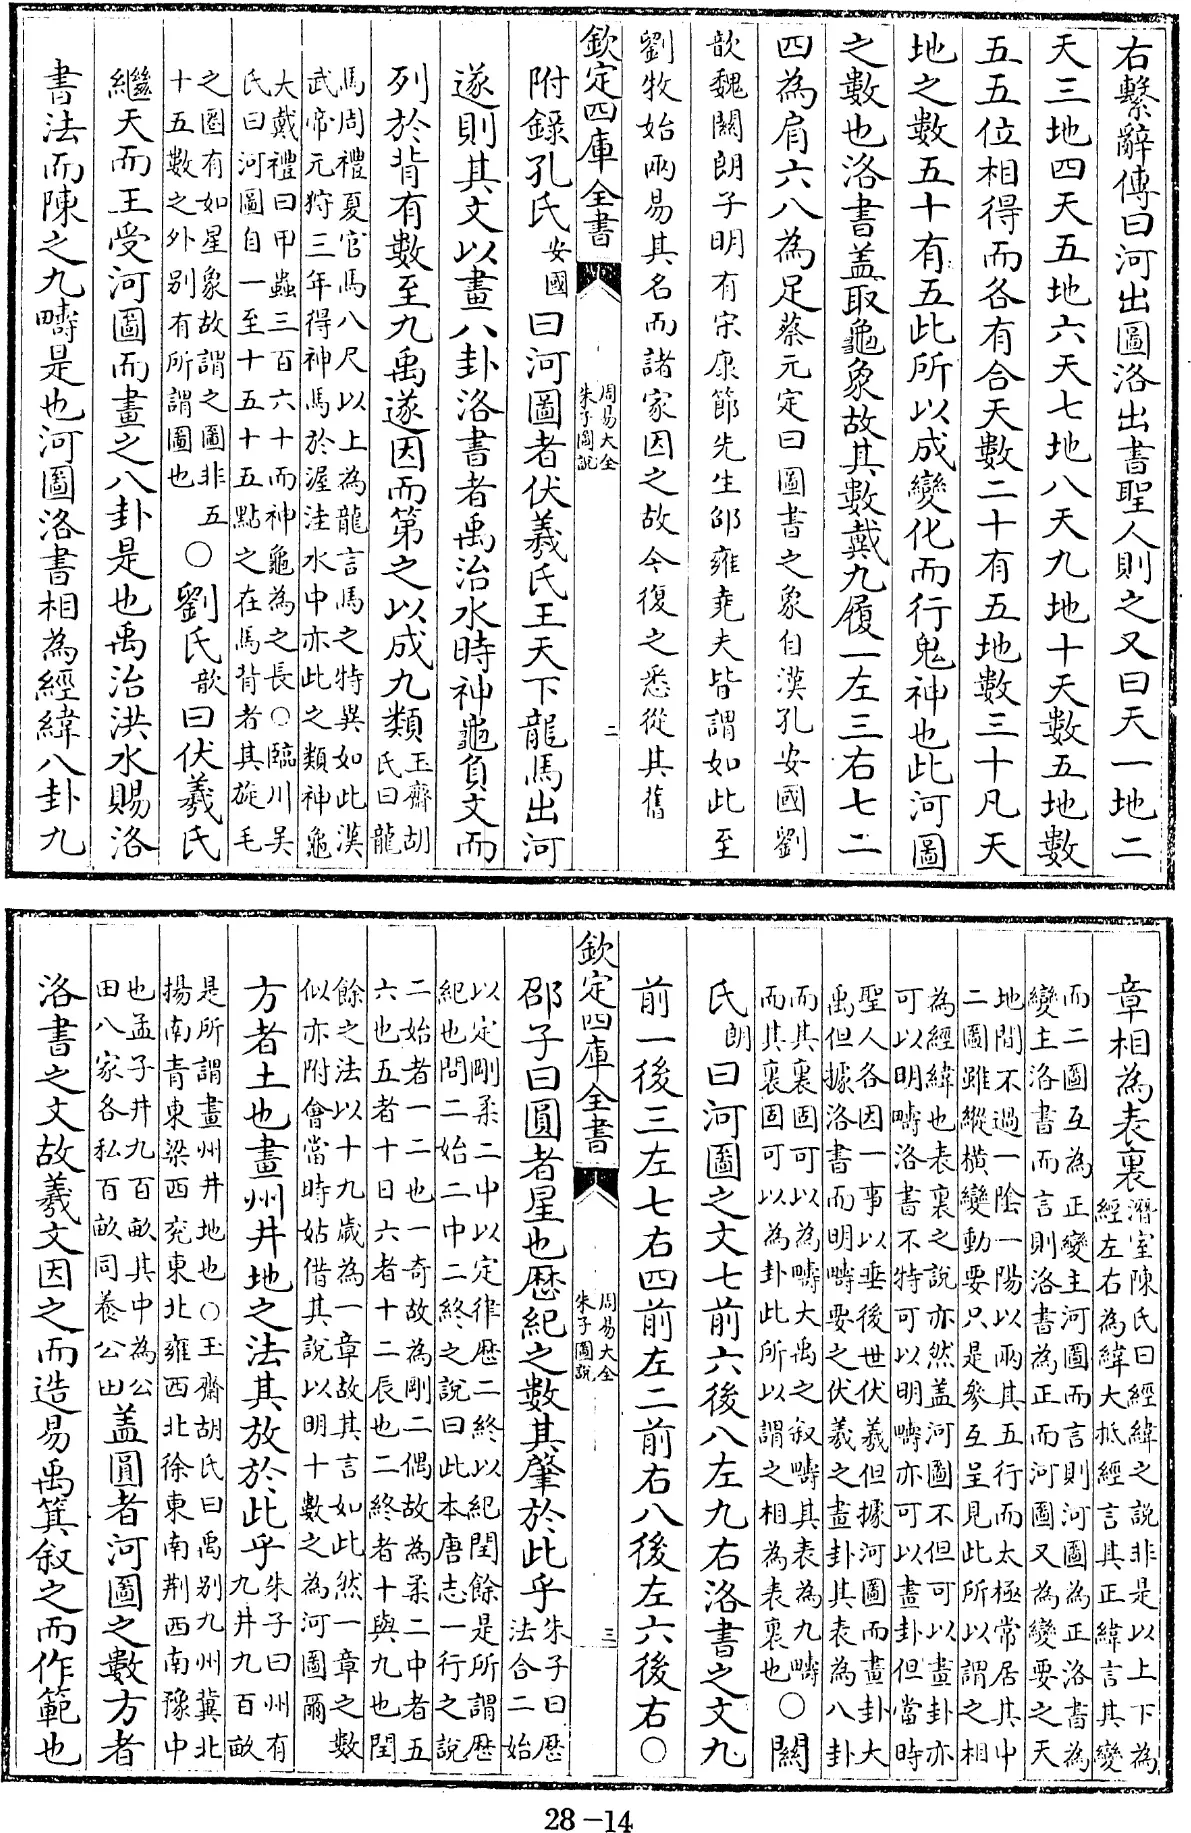 右繫辭傳曰河出圖洛出書聖人則之又曰天一地二
天三地四天五地六天七地八天九地十天數五地數
五五位相得而各有合天數二十有五地數三十凡天
地之數五十有五此所以成變化而行鬼神也此河圖
之數也洛書盖取龜象故其數戴九履一左三右七二
四為肩六八為足蔡元定曰圖書之象自漢孔安國劉
歆魏關朗子明有宋康節先生邵雍堯夫皆謂如此至
劉牧始兩易其名而諸家因之故今復之悉從其舊
欽定四庫全書 周易大全 朱子圖說 二
附錄孔氏安國曰河圖者伏羲氏王天下龍馬出河
遂則其文以畫八卦洛書者禹治水時神龜負文而
列於背有數至九禹遂因而第之以成九類玉齋胡氏曰龍
馬周禮夏官馬八尺以上為龍言馬之特異如此漢
武帝元狩三年得神馬於渥洼水中亦此之類神龜
大戴禮曰甲蟲三百六十而神龜為之長○臨川吳
氏曰河圖自一至十五十五點之在馬背者其旋毛
之圈有如星象故謂之圖非五
十五數之外别有所謂圖也○劉氏歆曰伏羲氏
繼天而王受河圖而畫之八卦是也禹治洪水賜洛
書法而陳之九疇是也河圖洛書相為經緯八卦九
章相為表裏潛室陳氏曰經緯之說非是以上下為
經左右為緯大抵經言其正緯言其變
而二圖互為正變主河圖而言則河圖為正洛書為
變主洛書而言則洛書為正而河圖又為變要之天
地間不過一陰一陽以兩其五行而太極常居其中
二圖雖縱橫變動要只是參互呈見此所以謂之相
為經緯也表裏之說亦然盖河圖不但可以畫卦亦
可以明疇洛書不特可以明疇亦可以畫卦但當時
聖人各因一事以垂後世伏羲但據河圖而畫卦大
禹但據洛書而明疇要之伏羲之畫卦其表為八卦
而其裏固可以為疇大禹之叙疇其表為九疇
而其裏固可以為卦此所以謂之相為表裏也○關
氏朗曰河圖之文七前六後八左九右洛書之文九
前一後三左七右四前左二前右八後左六後右○
欽定四庫全書 周易大全 朱子圖說 三
邵子曰圓者星也歷紀之數其肇於此乎朱子曰歷法合二始
以定剛柔二中以定律歷二終以紀閏餘是所謂歷
紀也問二始二中二終之說曰此本唐志一行之說
二始者一二也一奇故為剛二偶故為柔二中者五
六也五者十日六者十二辰也二終者十與九也閏
餘之法以十九歲為一章故其言如此然一章之數
似亦附會當時姑借其說以明十數之為河圖爾
方者土也畫州井地之法其放於此乎朱子曰州有九井九百畝
是所謂畫州井地也○玉齋胡氏曰禹別九州冀北
揚南青東梁西兖東北雍西北徐東南荆西南豫中
也孟子井九百畝其中為公
田八家各私百畝同養公田盖圓者河圖之數方者
洛書之文故羲文因之而造易禹箕叙之而作範也
28-14